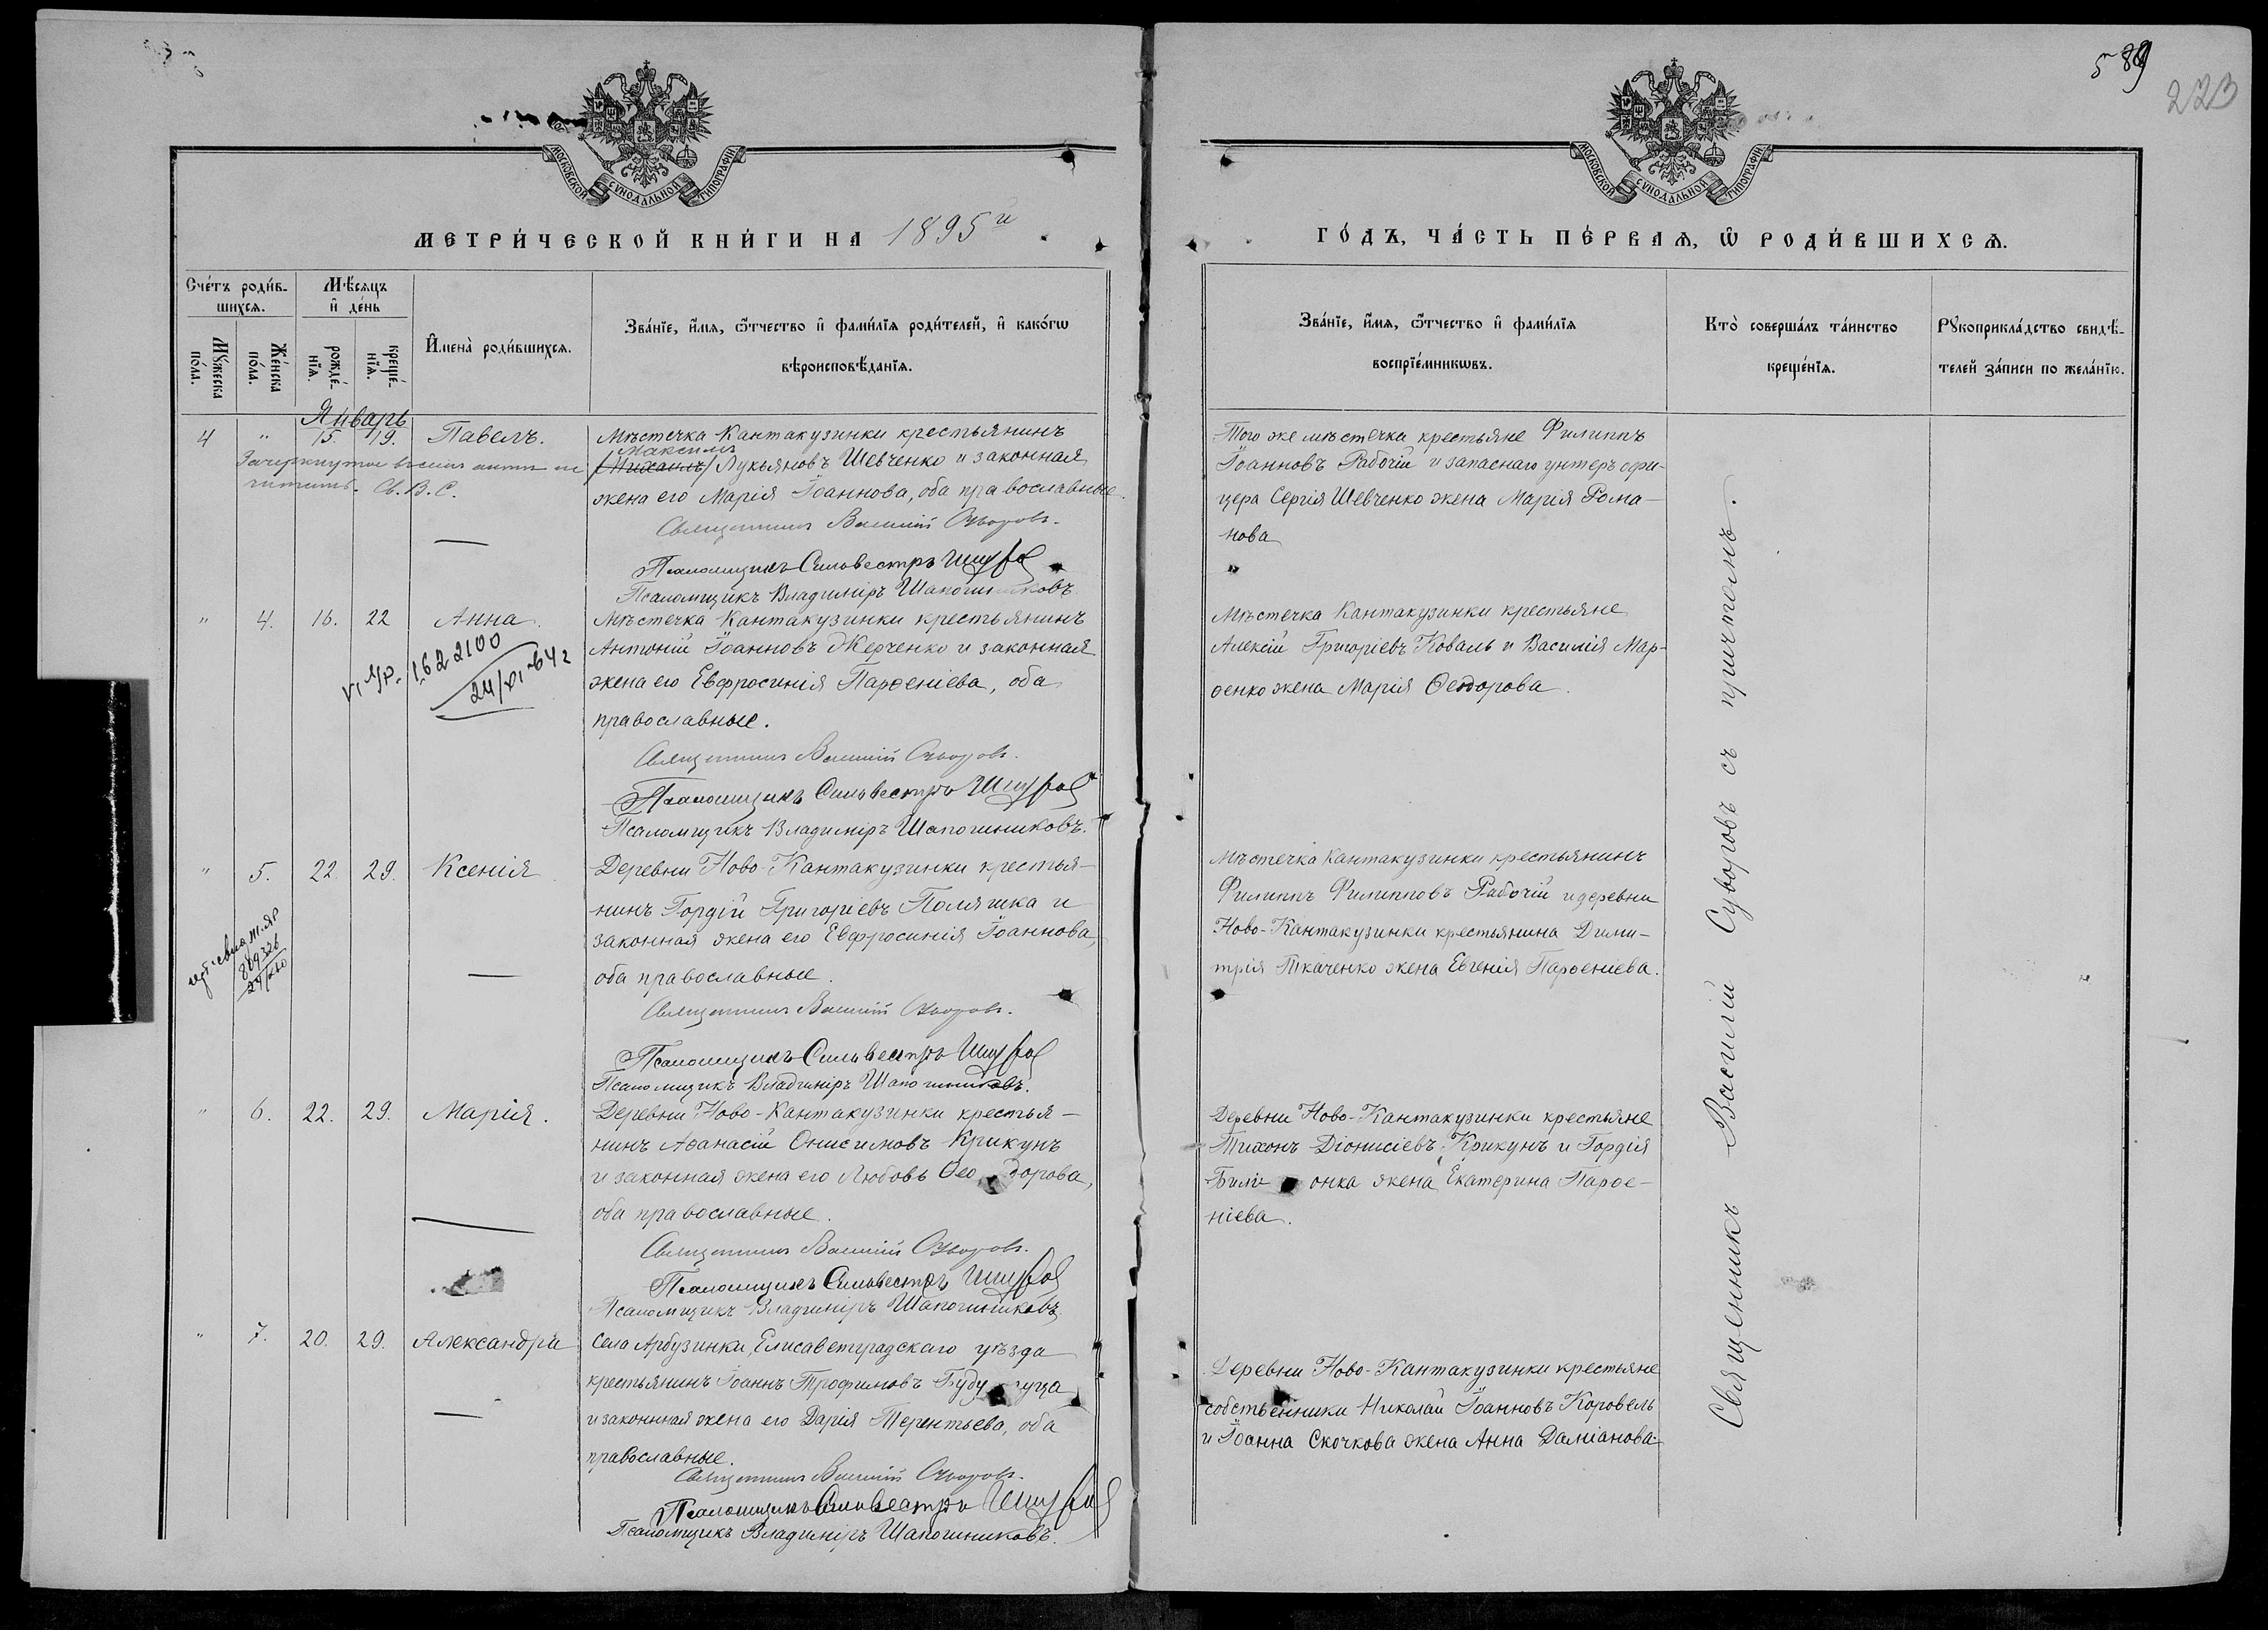 589
223
МОСКОВСКОЙ СѴНОДАЛЬНОЙ ТИПОГРАФІИ
МОСКОВСКОЙ СѴНОДАЛЬНОЙ ТИПОГРАФІИ
МЕТРИ́ЧЕСКОЙ КНИ́ГИ НА 1895й
ГО́ДЪ, ЧА́СТЬ ПЕ́РВАѦ, Ѿ РОДИ́ВШИХСѦ.
Сче́тъ роди́в-
шихсѧ.
Мꙋ́жеска
по́ла.
Же́нска
по́ла.
Мѣ́сѧцъ
и҆ де́нь
рожде́-
нїѧ.
креще́-
нїѧ.
И҆мена̀ роди́вшихсѧ.
Зва́нїе, и҆́мѧ, ѻ҆́тчество и҆ фами́лїѧ роди́телей, и҆ како́гѡ
вѣроисповѣ́данїѧ.
Зва́нїе, и҆́мѧ, ѻ҆́тчество и҆ фами́лїѧ
воспрїе́мникѡвъ.
Кто̀ соверша́лъ та́инство
креще́нїѧ.
Рꙋкоприкла́дство свидѣ́-
телей за́писи по жела́нїю.
Январь
4 " 15. 19. Павелъ.
Зачеркнутое въ семъ актѣ не
читать. Св. В. С.
Мѣстечка Кантакузинки крестьянинъ
Максимъ
(Михаилъ) Лукьяновъ Шевченко и законная
жена его Марія Іоаннова, оба православные.
Священникъ Василій Суворовъ.
Псаломщикъ Сильвестръ
Псаломщикъ Владиміръ Шапошниковъ.
Того же мѣстечка крестьяне Филиппъ
Іоанновъ Рабочій и запаснаго унтеръ офи-
цера Сергія Шевченко жена Марія Рома-
нова
" 4. 16. 22 Анна.
1622100
24/VI-64г
Мѣстечка Кантакузинки крестьянинъ
Антоній Іоанновъ Жерченко и законная
жена его Евфросинія Парѳеніева, оба
православные.
Священникъ Василій Суворовъ.
Псаломщикъ Сильвестръ
Псаломщикъ Владиміръ Шапошниковъ.
Мѣстечка Кантакузинки крестьяне
Алексій Григоріевъ Коваль и Василія Мар-
ѳенко жена Марія Ѳеодорова.
" 5. 22. 29. Ксенія
Деревни Ново-Кантакузинки крестья-
нинъ Гордій Григоріевъ Поляшка и
законная жена его Евфросинія Іоаннова,
оба православные.
Священникъ Василій Суворовъ.
Псаломщикъ Сильвестръ
Псаломщикъ Владиміръ Шапошниковъ.
Мѣстечка Кантакузинки крестьянинъ
Филиппъ Филипповъ Рабочій и деревни
Ново-Кантакузинки крестьянина Дими-
трія Ткаченко жена Евгенія Парѳеніева.
" 6. 22. 29. Марія.
Деревни Ново-Кантакузинки крестья-
нинъ Аѳанасій Онисимовъ Крикунъ
и законная жена его Любовь Ѳеодорова,
оба православные.
Священникъ Василій Суворовъ.
Псаломщикъ Сильвестръ
Псаломщикъ Владиміръ Шапошниковъ.
Деревни Ново-Кантакузинки крестьяне
Тихонъ Діонисіевъ Крикунъ и Гордія
жена Екатерина Парѳе-
ніева.
" 7. 20. 29. Александра
Села Арбузинки, Елисаветградскаго уѣзда
крестьянинъ Іоаннъ Трофимовъ
и законная жена его Дарія Терентьева, оба
православные.
Священникъ Василій Суворовъ.
Псаломщикъ Сильвестръ
Псаломщикъ Владиміръ Шапошниковъ.
Деревни Ново-Кантакузинки крестьяне
собственники Николай Іоанновъ Коровель
и Іоанна Скочкова жена Анна Даміанова.
Священникъ Василій Суворовъ съ причтомъ.